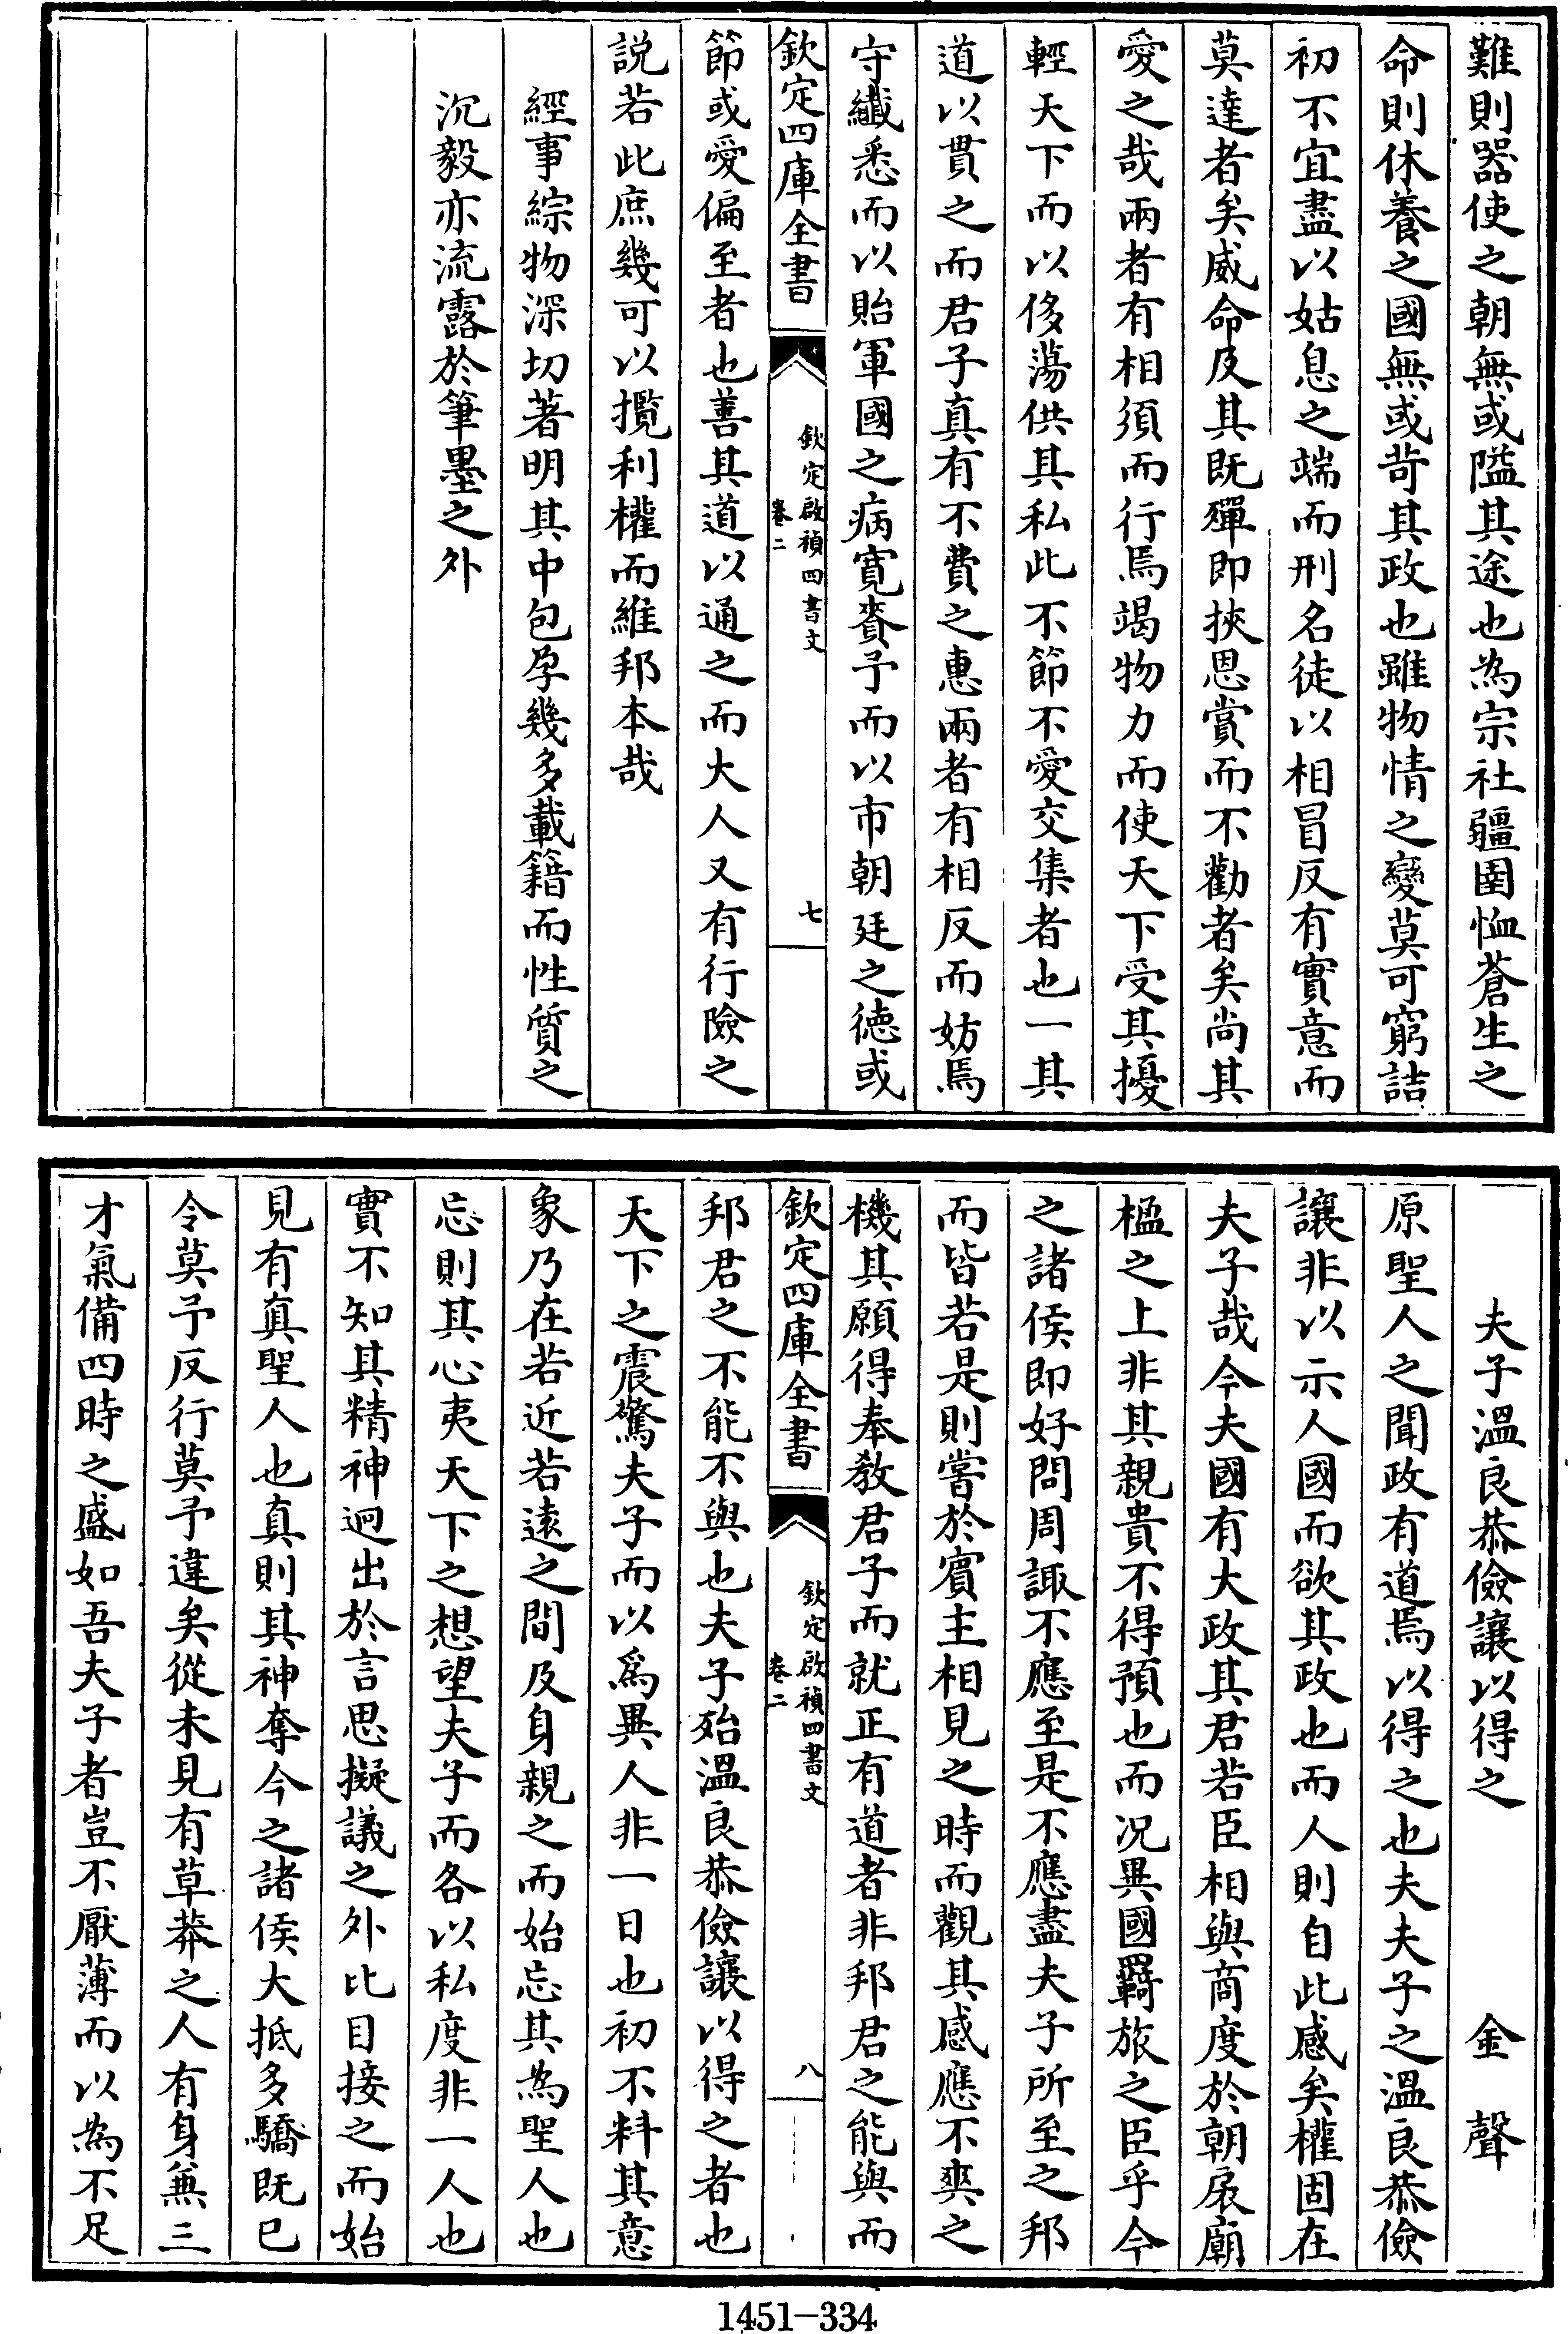 難則器使之朝無或隘其途也為宗社疆圉恤蒼生之
命則休養之國無或苛其政也雖物情之變莫可窮詰
初不宜盡以姑息之端而刑名徒以相冒反有實意而
莫達者矣威命及其既殫即挾恩賞而不勸者矣尚其
愛之哉兩者有相須而行焉竭物力而使天下受其擾
輕天下而以侈蕩供其私此不節不愛交集者也一其
道以貫之而君子真有不費之惠兩者有相反而妨焉
守纎悉而以貽軍國之病寛賚予而以市朝廷之徳或
欽定四庫全書
欽定啟禎四書文
卷二
七
節或愛偏至者也善其道以通之而大人又有行險之
説若此庶幾可以攬利權而維邦本哉
經事綜物深切著明其中包孕幾多載籍而性質之
沉毅亦流露於筆墨之外
夫子溫良恭儉讓以得之
金聲
原聖人之聞政有道焉以得之也夫夫子之溫良恭儉
讓非以示人國而欲其政也而人則自此感矣權固在
夫子哉今夫國有大政其君若臣相與商度於朝扆廟
楹之上非其親貴不得預也而况異國羇旅之臣乎今
之諸侯即好問周諏不應至是不應盡夫子所至之邦
而皆若是則嘗於賓主相見之時而觀其感應不爽之
機其願得奉教君子而就正有道者非邦君之能與而
欽定四庫全書
欽定啟禎四書文
卷二
八
邦君之不能不與也夫子殆溫良恭儉讓以得之者也
天下之震驚夫子而以爲異人非一日也初不料其意
象乃在若近若遠之間及身親之而始忘其為聖人也
忘則其心夷天下之想望夫子而各以私度非一人也
實不知其精神迥出於言思擬議之外比目接之而始
見有真聖人也真則其神奪今之諸侯大抵多驕既已
令莫予反行莫予違矣從未見有草莽之人有身兼三
才氣備四時之盛如吾夫子者豈不厭薄而以為不足
1451-334